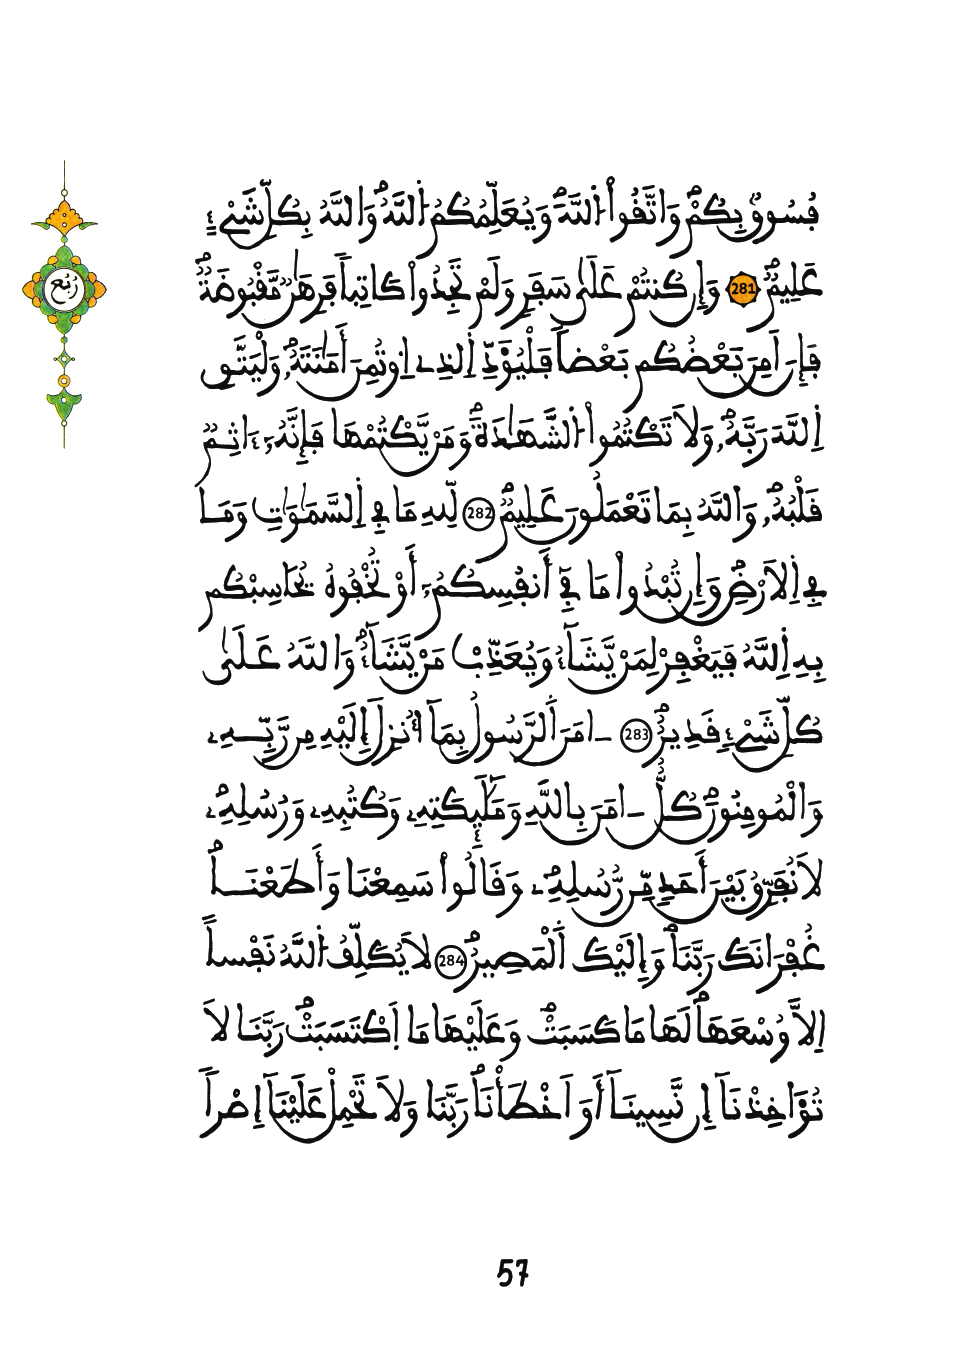 فُسُوقٌ بِكُمْ وَاتَّقُواْ اللَّهَ وَيُعَلِّمُكُمُ اللَّهُ وَاللَّهُ بِكُلِّ شَيْءٍ
عَلِيمٌ 281 وَإِن كُنتُمْ عَلَىٰ سَفَرٍ وَلَمْ تَجِدُواْ كَاتِباً فَرِهَٰنٌ مَّقْبُوضَةٌ
فَإِنْ أَمِنَ بَعْضُكُم بَعْضاً فَلْيُؤَدِّ اِلذِے اِوتُمِنَ أَمَٰنَتَهُۥ وَلْيَتَّقِ
اِللَّهَ رَبَّهُۥ وَلاَ تَكْتُمُواْ اُلشَّهَٰدَةَ وَمَنْ يَّكْتُمْهَا فَإِنَّهُۥٓ ءَاثِمٌ
قَلْبُهُۥ وَاللَّهُ بِمَا تَعْمَلُونَ عَلِيمٌ 282 لِّلهِ مَا فِے اِلسَّمَٰوَٰتِ وَمَا
فِے اِلاَرْضِ وَإِن تُبْدُواْ مَا فِےٓ أَنفُسِكُمُۥٓ أَوْ تُخْفُوهُ يُحَاسِبْكُم
بِهِ اِللَّهُ فَيَغْفِرْ لِمَنْ يَّشَآءُ وَيُعَذِّبْ مَنْ يَّشَآءُ وَاللَّهُ عَلَىٰ
كُلِّ شَيْءٍ قَدِيرٌ 283 ءَامَنَ اَلرَّسُولُ بِمَآ أُنزِلَ إِلَيْهِ مِن رَّبِّهِۦ
وَالْمُومِنُونَ كُلٌّ ءَامَنَ بِاللَّهِ وَمَلَٰٓئِكَتِهِۦ وَكُتُبِهِۦ وَرُسُلِهِۦ
لاَ نُفَرِّقُ بَيْنَ أَحَدٍ مِّن رُّسُلِهِۦ وَقَالُواْ سَمِعْنَا وَأَطَعْنَا
غُفْرَانَكَ رَبَّنَا وَإِلَيْكَ اَلْمَصِيرُ 284 لاَ يُكَلِّفُ اُللَّهُ نَفْساً
اِلاَّ وُسْعَهَا لَهَا مَا كَسَبَتْ وَعَلَيْهَا مَا اَكْتَسَبَتْ رَبَّنَا لاَ
تُؤَاخِذْنَآ إِن نَّسِينَآ أَوَ اَخْطَأْنَا رَبَّنَا وَلاَ تَحْمِلْ عَلَيْنَآ إِصْراً
رُبُع
57